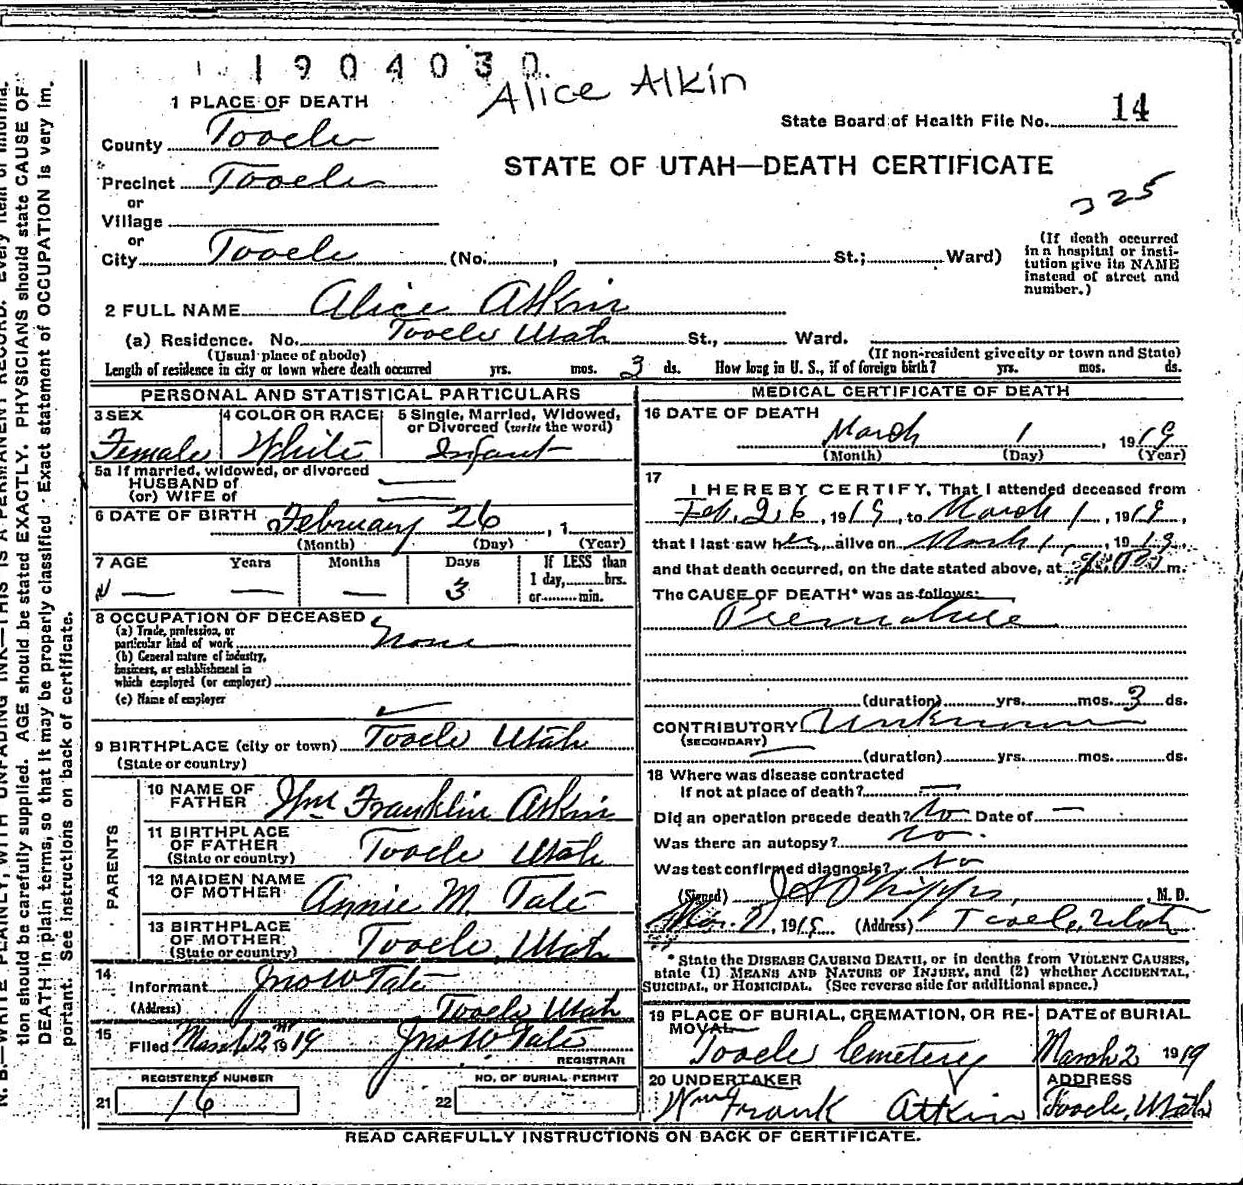 1904030
Alice Atkin
1 PLACE OF DEATH
State Board of Health File No. 14
County Tooele
STATE OF UTAH—DEATH CERTIFICATE
Precinct Tooele
325
or
Village
or
City Tooele (No. , St.; Ward)
(If death occurred in a hospital or insti-
tution give its NAME
instead of street and
number.)
2 FULL NAME Alice Atkin
(a) Residence. No. Tooele Utah St., Ward.
(Usual place of abode) (If non-resident give city or town and State)
Length of residence in city or town where death occurred yrs. mos. 3 ds. How long in U. S., if of foreign birth? yrs. mos. ds.
PERSONAL AND STATISTICAL PARTICULARS
3 SEX 4 COLOR OR RACE 5 Single, Married, Widowed,
or Divorced (write the word)
Female White Infant
5a If married, widowed, or divorced
HUSBAND of
(or) WIFE of
6 DATE OF BIRTH February 26, 1
(Month) (Day) (Year)
7 AGE Years Months Days If LESS than
1 day, hrs.
or min.
— — 3
8 OCCUPATION OF DECEASED
(a) Trade, profession, or
particular kind of work None
(b) General nature of industry,
business, or establishment in
which employed (or employer)
(c) Name of employer
9 BIRTHPLACE (city or town) Tooele Utah
(State or country)
PARENTS
10 NAME OF
FATHER Wm Franklin Atkin
11 BIRTHPLACE
OF FATHER Tooele Utah
(State or country)
12 MAIDEN NAME
OF MOTHER Annie M. Tate
13 BIRTHPLACE
OF MOTHER Tooele, Utah
(State or country)
14
Informant Jno W Tate
(Address) Tooele Utah
15 Filed March 12 1919 Jno W Tate
REGISTRAR
REGISTERED NUMBER NO. OF BURIAL PERMIT
21 16 22
MEDICAL CERTIFICATE OF DEATH
16 DATE OF DEATH
March 1, 1919
(Month) (Day) (Year)
17
I HEREBY CERTIFY, That I attended deceased from
Feb. 26, 1919, to March 1, 1919,
that I last saw her alive on March 1, 1919,
and that death occurred, on the date stated above, at m.
The CAUSE OF DEATH* was as follows:
Premature
(duration) yrs. mos. 3 ds.
CONTRIBUTORY Unknown
(SECONDARY)
(duration) yrs. mos. ds.
18 Where was disease contracted
if not at place of death? —
Did an operation precede death? No Date of —
Was there an autopsy? No.
Was test confirmed diagnosis? No
(Signed) J A Phipps, M. D.
Mar. , 191 (Address) Tooele, Utah
*State the DISEASE CAUSING DEATH, or in deaths from VIOLENT CAUSES,
state (1) MEANS AND NATURE OF INJURY, and (2) whether ACCIDENTAL,
SUICIDAL, or HOMICIDAL. (See reverse side for additional space.)
19 PLACE OF BURIAL, CREMATION, OR RE-
MOVAL DATE of BURIAL
Tooele Cemetery March 2 1919
20 UNDERTAKER ADDRESS
Wm Frank Atkin Tooele, Utah
READ CAREFULLY INSTRUCTIONS ON BACK OF CERTIFICATE.
N. B.—WRITE PLAINLY, WITH UNFADING INK—THIS IS A PERMANENT RECORD. Every item of informa-
tion should be carefully supplied. AGE should be stated EXACTLY. PHYSICIANS should state CAUSE OF
DEATH in plain terms, so that it may be properly classified. Exact statement of OCCUPATION is very im-
portant. See instructions on back of certificate.